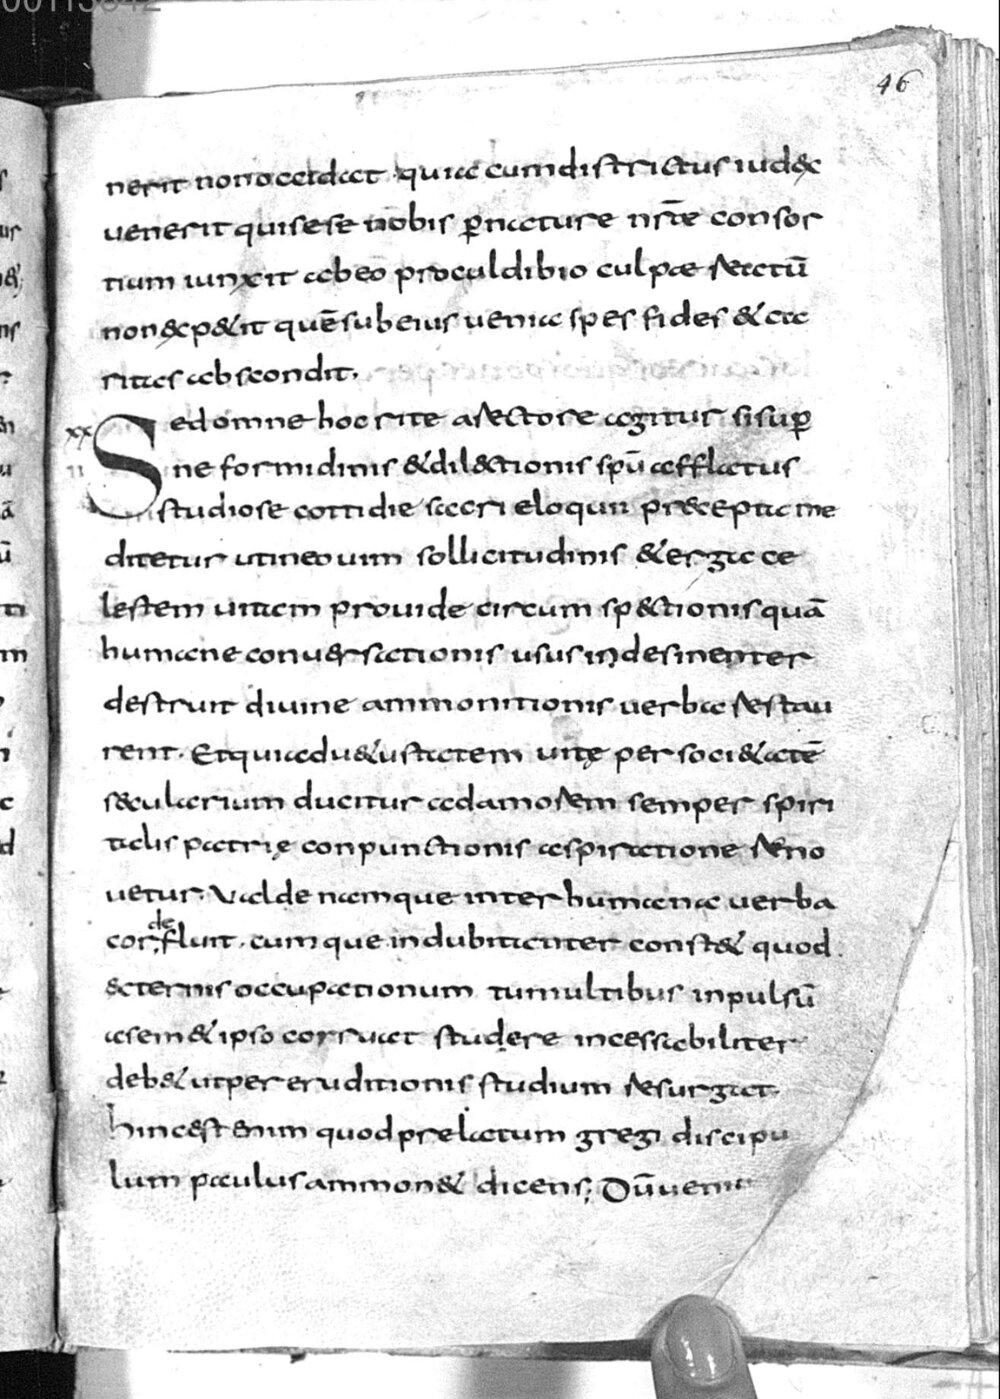 46
nerit non occidat quia cum districtus iudex
uenerit qui sese nobis p̄ nature nr̄ae consor
tium iunxit ab eo procul dibio culpae reatū
non exp&it quē sub eius uenia spes fides & ca
ritas abscondit,
xx
S ed omne hoc rite a rectore agitur si sup̄
ii
ne formidinis & dilectionis spū afflatus
studiose cottidie sacri eloquii precepta me
ditetur ut in eo uim sollicitudinis & erga ce
lestem uitam prouide circumsp&ionis quā
humane conuersationis usus indesinenter
destruit diuine ammonitionis uerba restau
rent. Et quia ad u&ustatem uitę per soci&atē
sęcularium ducitur ad amorem semper spiri
talis patrię conpunctionis aspiratione reno
uetur. Valde namque inter humana uerba
de
cor; fluit. cumque indubitanter const& quod
externis occupationum tumultibus inpulsū
a sem& ipso corruat studere incessabiliter
deb& ut per eruditionis studium resurgat.
hinc est enim quod prelatum gregi discipu
lum paulus ammon& dicens; Dū uenio